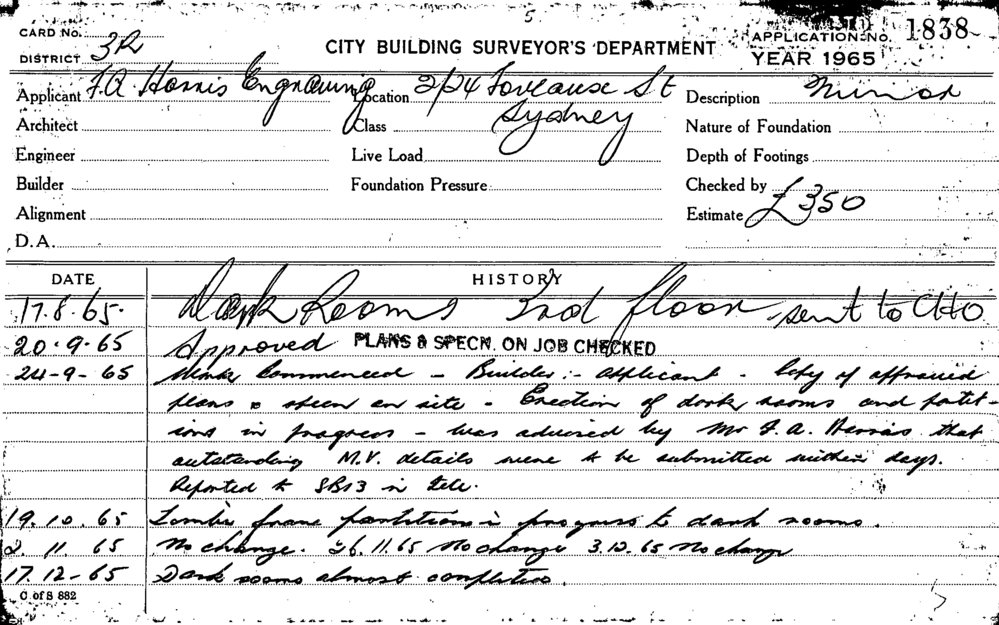 5
CARD No.
DISTRICT 3R
CITY BUILDING SURVEYOR'S DEPARTMENT
APPLICATION No. 1838
YEAR 1965
Applicant F.A. Harris Engraving Location 2/24 Foveaux St Description Minor
Sydney
Architect Class Nature of Foundation
Engineer Live Load Depth of Footings
Builder Foundation Pressure Checked by
Alignment Estimate £350
D.A.
DATE HISTORY
17.8.65. Dark Rooms 2nd floor sent to CHO
20.9.65 Approved PLANS & SPECN. ON JOB CHECKED
24-9-65 Work Commenced - Builder :- applicant - Copy of approved
plans & specn on site - Erection of dark rooms and partit-
ions in progress - was advised by Mr F.A. Harris that
outstanding M.V. details were to be submitted within days.
Reported to SB13 in tele.
19.10.65 Timber frame partitions in progress to dark rooms.
2.11 65 No change. 26.11.65 No change 3.12.65 No change
17.12-65 Dark rooms almost completion.
C of S 882